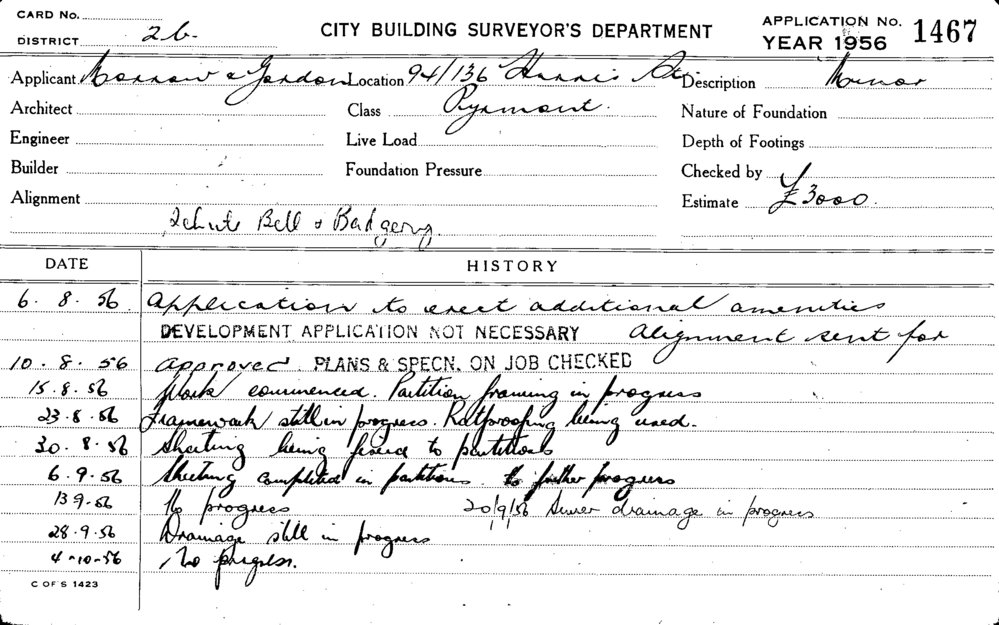 CARD No.
DISTRICT 26.
CITY BUILDING SURVEYOR'S DEPARTMENT
APPLICATION No. 1467
YEAR 1956
Applicant Morrow & Gordon Location 94/136 Harris St. Description Minor
Architect Class Pyrmont. Nature of Foundation
Engineer Live Load Depth of Footings
Builder Foundation Pressure Checked by
Alignment Estimate £3000.
Schute Bell & Badgery.
DATE HISTORY
6. 8. 56 Application to erect additional amenities
DEVELOPMENT APPLICATION NOT NECESSARY Alignment sent for
10. 8. 56 approved. PLANS & SPECN. ON JOB CHECKED
15. 8. 56 Work commenced. Partition framing in progress
23. 8. 56 Framework still in progress. Ratproofing being used.
30. 8. 56 Sheeting being fixed to partitions
6. 9. 56 Sheeting completed in partitions. No further progress
13 9. 56 No progress 20/9/56 Sewer drainage in progress
28. 9. 56 Drainage still in progress
4-10-56 No progress.
C OF S 1423